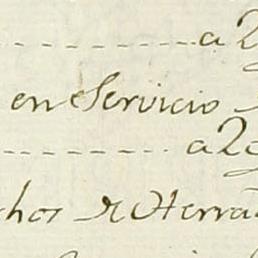 a 2
en Servicio
a 2
chos de Herra